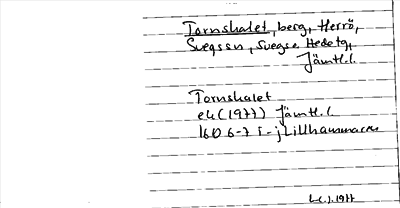 Tornshalet, berg, Herrö,
Svegssn, Svegs Hedetg,
Jämtl.l.
Tornshalet
ek (1977) Jämtl.l.
16D 6-7 i-j Lillhammaren
1977